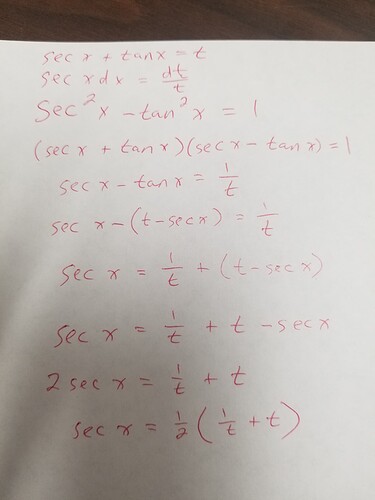 sec x + tan x = t
sec x dx = dt/t
Sec²x - tan²x = 1
(sec x + tan x)(sec x - tan x) = 1
sec x - tan x = 1/t
sec x - (t - sec x) = 1/t
sec x = 1/t + (t - sec x)
sec x = 1/t + t - sec x
2 sec x = 1/t + t
sec x = 1/2 (1/t + t)